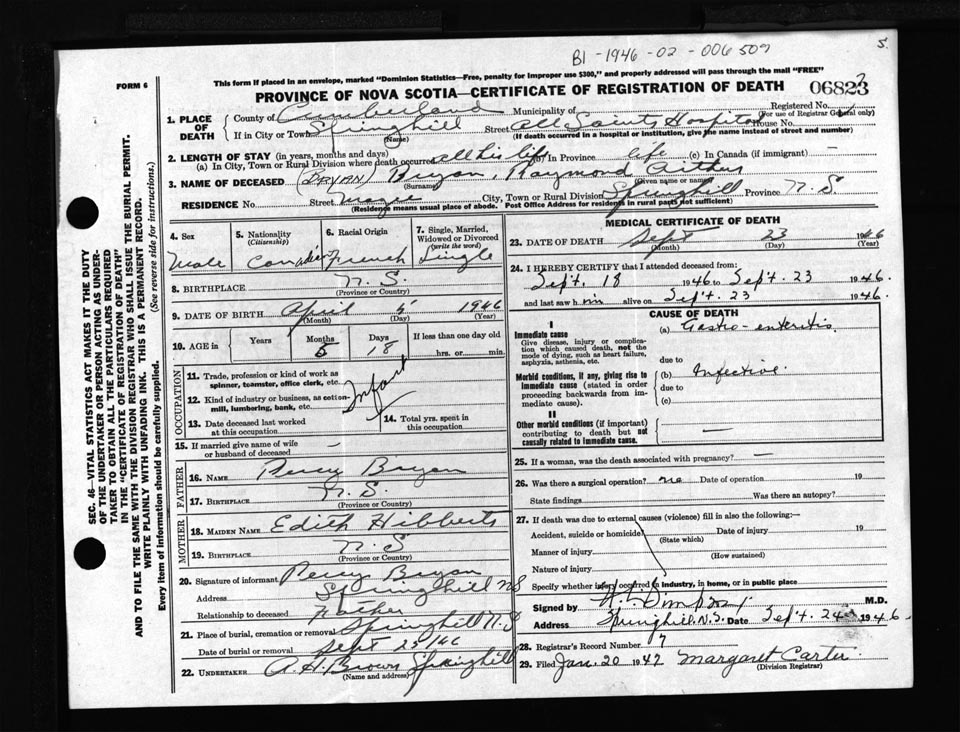 B1-1946-02-006509
5.
FORM 6
This form if placed in an envelope, marked "Dominion Statistics—Free, penalty for improper use $300," and properly addressed will pass through the mail "FREE"
PROVINCE OF NOVA SCOTIA—CERTIFICATE OF REGISTRATION OF DEATH
06823
SEC. 46—VITAL STATISTICS ACT MAKES IT THE DUTY
OF THE UNDERTAKER OR PERSON ACTING AS UNDER-
TAKER TO OBTAIN ALL THE PARTICULARS REQUIRED
IN THE "CERTIFICATE OF REGISTRATION OF DEATH"
AND TO FILE THE SAME WITH THE DIVISION REGISTRAR WHO SHALL ISSUE THE BURIAL PERMIT.
WRITE PLAINLY WITH UNFADING INK. THIS IS A PERMANENT RECORD.
Every item of Information should be carefully supplied. (See reverse side for instructions.)
1. PLACE OF DEATH
County of Cumberland Municipality of Registered No. (For use of Registrar General only)
If in City or Town Springhill (Name) Street All Saints Hospital House No.
(If death occurred in a hospital or institution, give the name instead of street and number)
2. LENGTH OF STAY (in years, months and days)
(a) In City, Town or Rural Division where death occurred all his life (b) In Province life (c) In Canada (if immigrant) —
3. NAME OF DECEASED (BRYAN) Bryon, Raymond Arthur
(Surname) (Given name or names)
RESIDENCE No. Street City, Town or Rural Division Springhill Province N.S.
(Residence means usual place of abode. Post Office Address for residents in rural parts not sufficient)
4. Sex 5. Nationality (Citizenship) 6. Racial Origin 7. Single, Married, Widowed or Divorced (write the word)
Male Canadian French Single
8. BIRTHPLACE N.S.
(Province or Country)
9. DATE OF BIRTH April 5 1946
(Month) (Day) (Year)
10. AGE in Years Months Days If less than one day
5 18 hrs. or min.
OCCUPATION
11. Trade, profession or kind of work as spinner, teamster, office clerk, etc.
Infant
12. Kind of industry or business, as cotton-mill, lumbering, bank, etc.
13. Date deceased last worked at this occupation
14. Total yrs. spent in this occupation
15. If married give name of wife or husband of deceased —
FATHER
16. NAME Percy Bryon
17. BIRTHPLACE N.S.
(Province or Country)
MOTHER
18. MAIDEN NAME Edith Hibberts
19. BIRTHPLACE N.S
(Province or Country)
20. Signature of informant Percy Bryon
Address Springhill NS
Relationship to deceased Father
21. Place of burial, cremation or removal Springhill N.S
Date of burial or removal Sept 25/46
22. UNDERTAKER A.H. Brown Springhill
(Name and address)
MEDICAL CERTIFICATE OF DEATH
23. DATE OF DEATH Sept 23 1946
(Month) (Day) (Year)
24. I HEREBY CERTIFY that I attended deceased from:
Sept. 18 1946 to Sept. 23 1946.
and last saw him alive on Sept. 23 1946.
CAUSE OF DEATH
I
Immediate cause (a) Gastro-enteritis.
Give disease, injury or complication which caused death, not the mode of dying, such as heart failure, asphyxia, asthenia, etc.
due to
Morbid conditions, if any, giving rise to immediate cause (stated in order proceeding backwards from immediate cause).
(b) Infective.
due to
(c)
II
Other morbid conditions (if important) contributing to death but not causally related to immediate cause. —
25. If a woman, was the death associated with pregnancy? —
26. Was there a surgical operation? no Date of operation 19
State findings Was there an autopsy?
27. If death was due to external causes (violence) fill in also the following:—
Accident, suicide or homicide (State which) Date of injury 19
Manner of injury (How sustained)
Nature of injury
Specify whether injury occurred in industry, in home, or in public place
Signed by Simpson M.D.
Address Springhill. N.S. Date Sept. 24 1946.
28. Registrar's Record Number 7
29. Filed Jan. 20 1947 Margaret Carter
(Division Registrar)